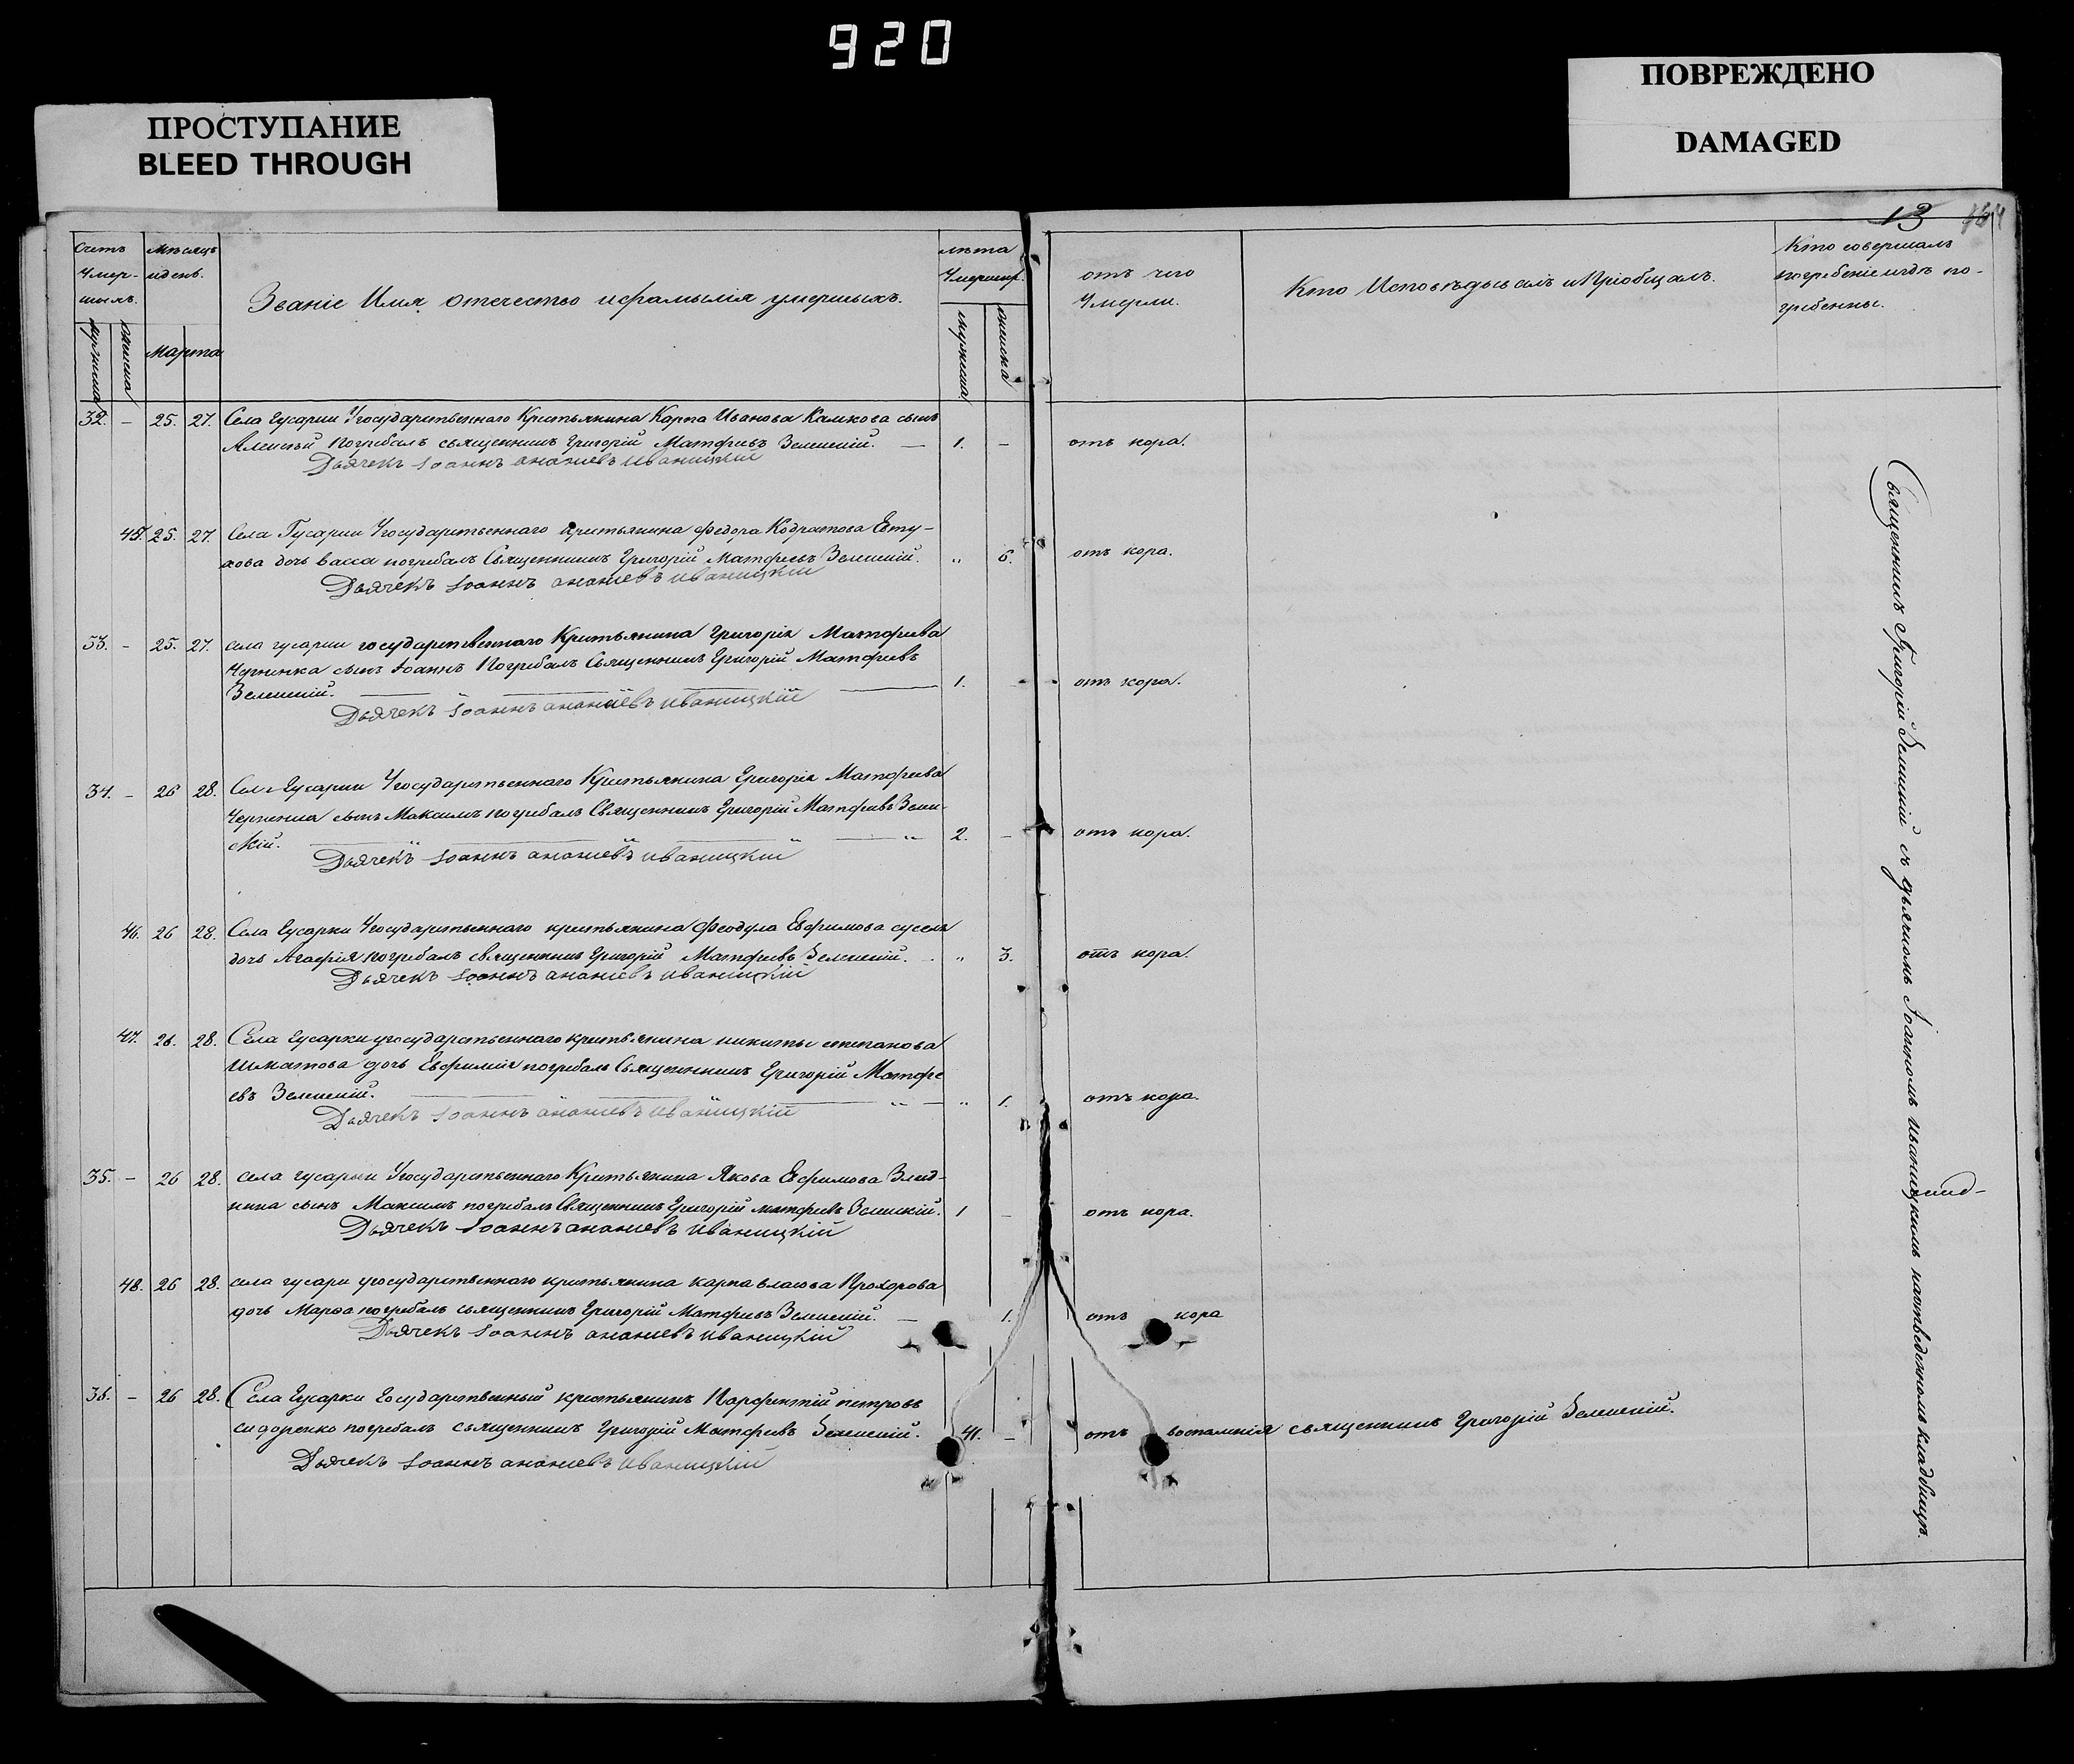 920
ПРОСТУПАНИЕ
BLEED THROUGH
ПОВРЕЖДЕНО
DAMAGED
13
Счетъ
Умер-
шихъ.
Мѣсяцъ
и день.
Марта
Званіе Имя отечество и фамилія умершихъ.
лѣта
Умерших.
отъ чего
Умерли.
Кто Исповѣдывалъ и Пріобщалъ.
Кто совершалъ
погребеніе и гдѣ по-
гребенны.
32. – 25. 27. Села Гусарки Государственнаго Крестьянина Карпа Иванова Камкова сынъ
Алексѣй погребалъ священникъ Григорій Матфѣевъ Зеленскій. — 1. – отъ кора.
Дьячекъ Іоаннъ ананіевъ иваницкій
45. 25. 27. Села Гусарки Государственнаго крестьянина Федора Кодратова Евту-
хова дочь васса погребалъ Священникъ Григорій Матфѣевъ Зеленскій. „ 6. отъ кора.
Дьячекъ Іоаннъ ананіевъ иваницкій
33. – 25. 27. села гусарки государственнаго Крестьянина Григорія Матфѣева
сынъ Іоаннъ Погребалъ Священникъ Григорій Матфѣевъ
Зеленскій. 1. – отъ кора.
Дьячекъ Іоаннъ ананіевъ иваницкій
34. – 26 28. Села Гусарки Государственнаго Крестьянина Григорія Матфѣева
сынъ Максимъ погребалъ Священникъ Григорій Матфѣевъ Зелен-
скій. 2. – отъ кора.
Дьячекъ Іоаннъ ананіевъ иваницкій
46. 26 28. Села Гусарки Государственнаго крестьянина Феодула Евфимова сусла
дочь Агафія погребалъ священникъ Григорій Матфѣевъ Зеленскій. „ 3. отъ кора.
Дьячекъ Іоаннъ ананіевъ иваницкій
47. 26. 28. Села Гусарки государственнаго крестьянина никиты степанова
шматова дочь Евфимія погребалъ Священникъ Григорій Матфе
евъ Зеленскій. „ 1. отъ кора.
Дьячекъ Іоаннъ ананіевъ иваницкій
35. – 26 28. села гусарки Государственнаго Крестьянина Якова Евфимова
сынъ Максимъ погребалъ Священникъ Григорій матфѣевъ Зеленскій. 1 – отъ кора.
Дьячекъ Іоаннъ ананіевъ иваницкій
48. 26 28. села гусарки государственнаго крестьянина карпа власова Прохорова
дочь Марфа погребалъ священникъ Григорій Матфѣевъ Зеленскій. — 1. отъ кора
Дьячекъ Іоаннъ ананіевъ иваницкій
36. – 26 28. Села Гусарки Государственный крестьянинъ Парфентій петровъ
сидоренко погребалъ священникъ Григорій Матфѣевъ Зеленскій. 41. – отъ воспаленія священникъ Григорій Зеленскій.
Дьячекъ Іоаннъ ананіевъ иваницкій
Священникъ Григорій Зеленскій съ дьячкомъ Іоанномъ иваницкимъ на отведенномъ кладбищѣ.